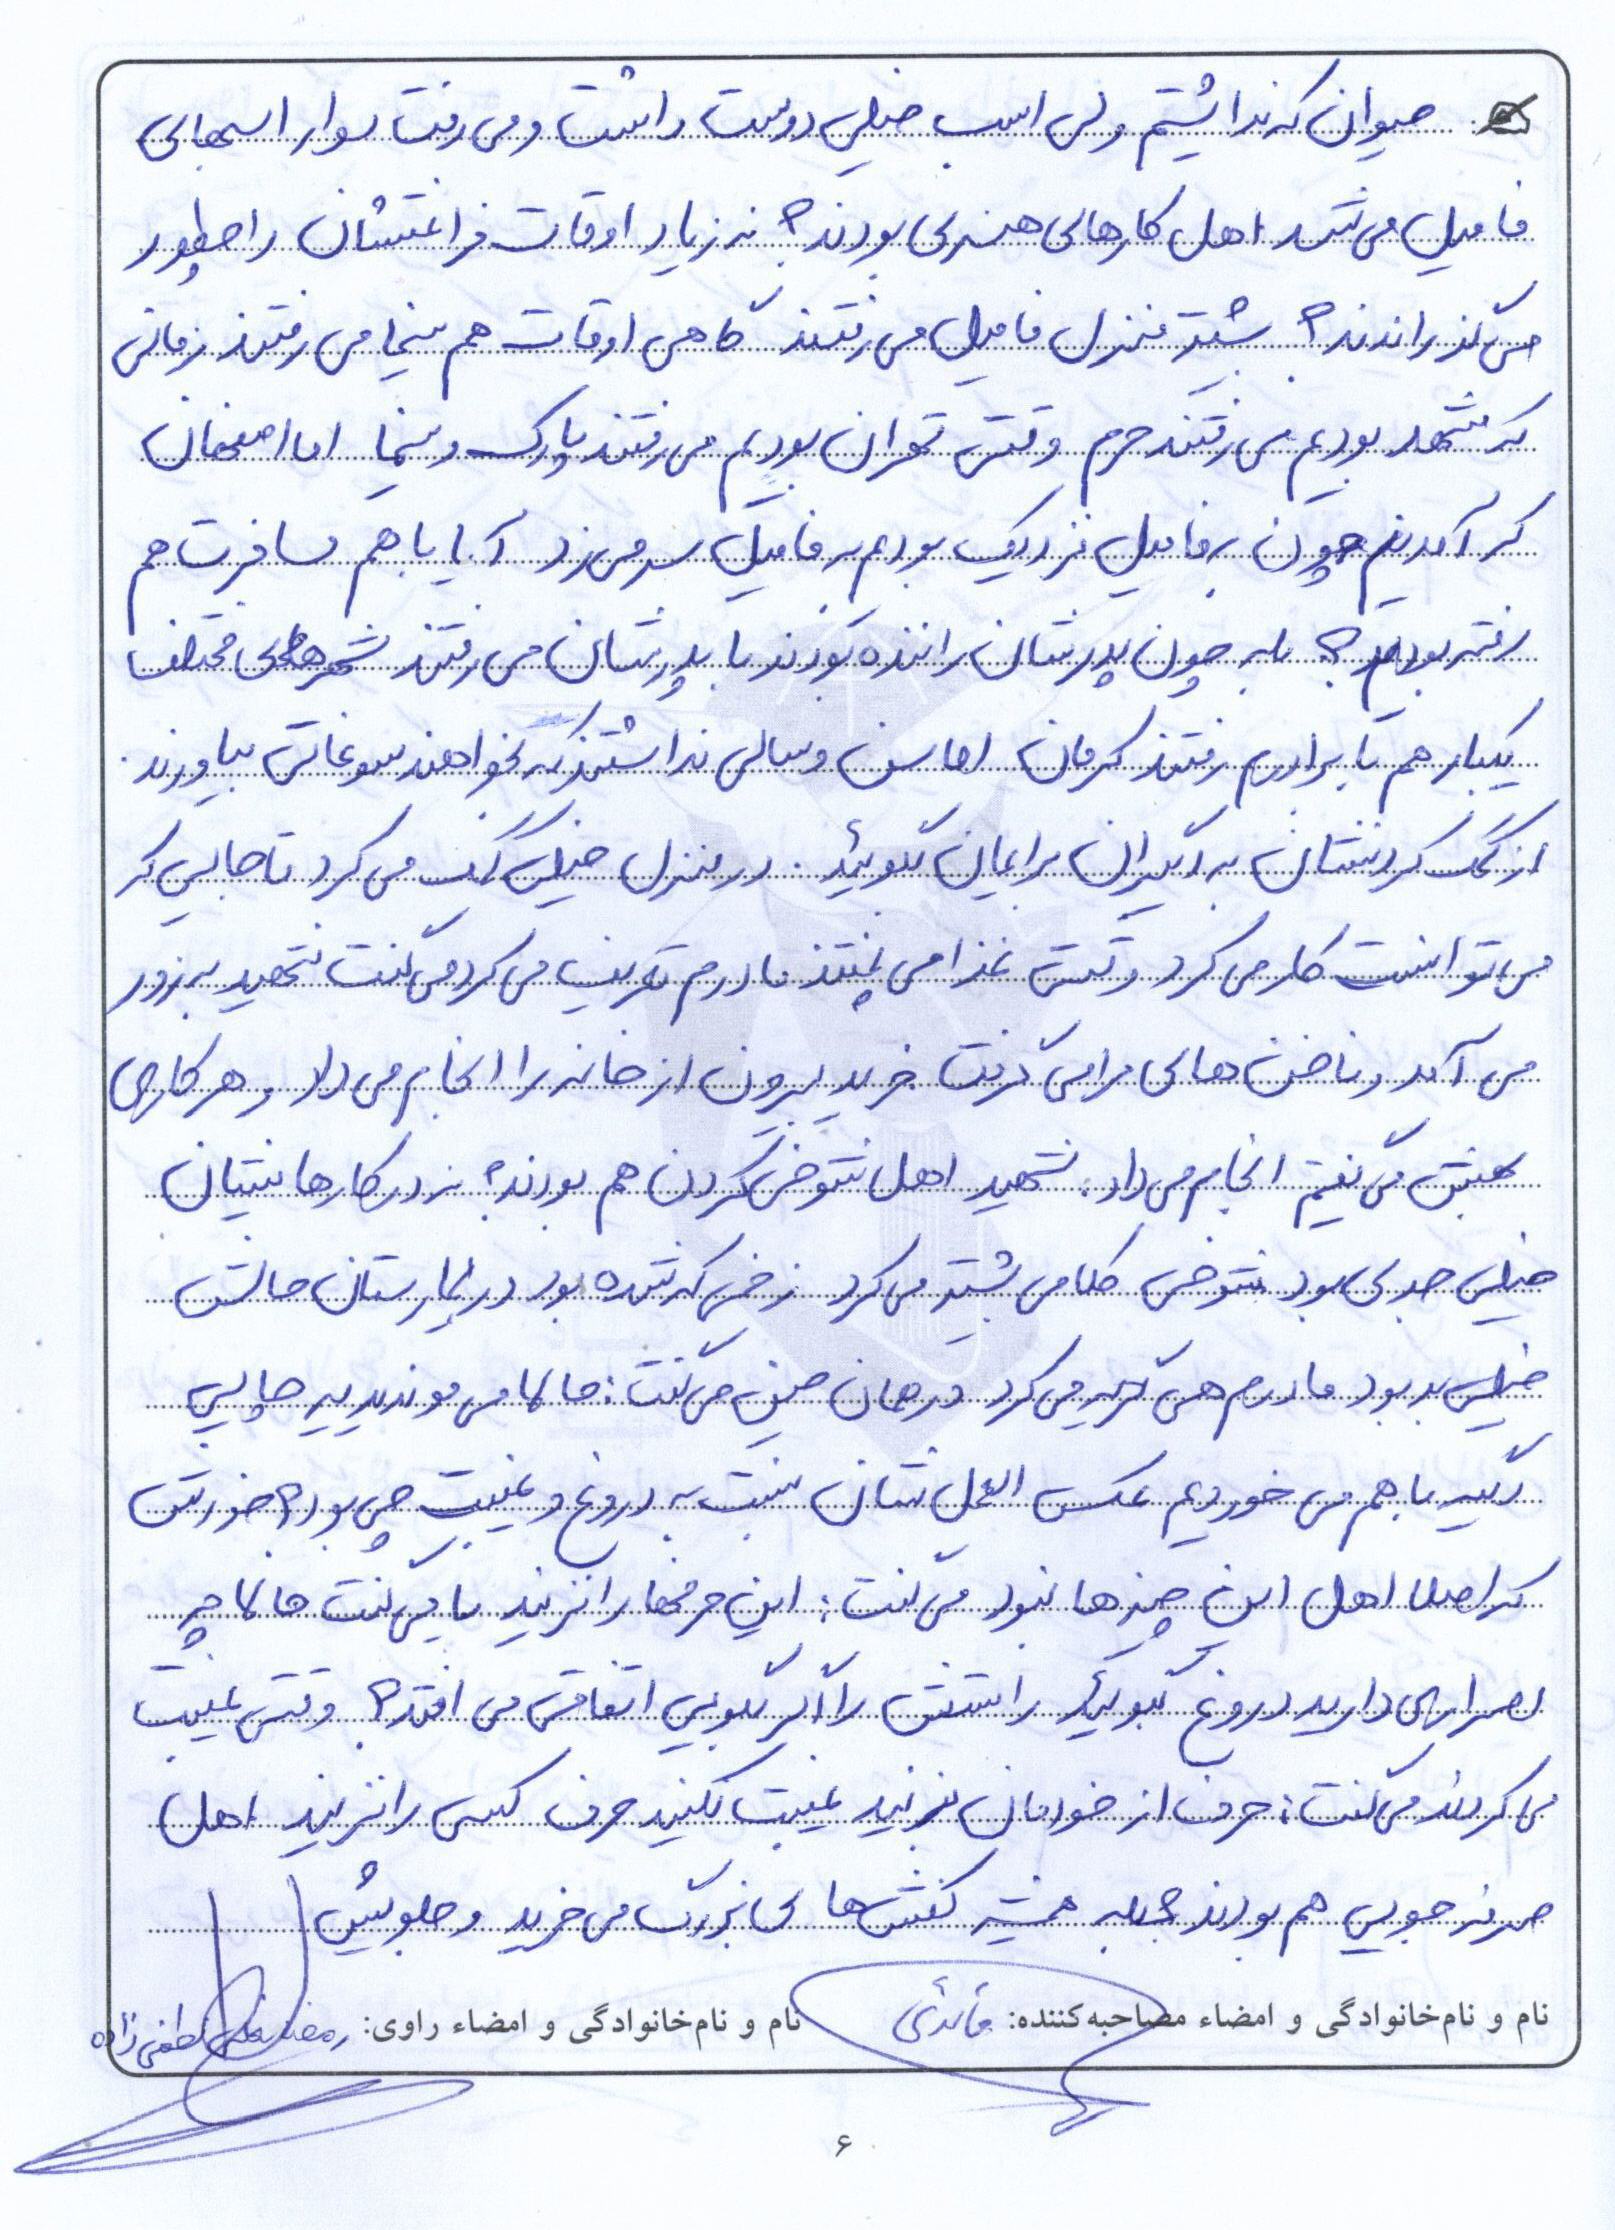 حیوان که نداشتیم ولی اسب خیلی دوست داشت و می رفت سوار اسبهای
فامیل می شد اهل کارهای هنری بودند؟ نه زیاد اوقات فراغتشان را چطور
می گذراندند؟ بیشتر منزل فامیل می رفتند گاهی اوقات هم سینما می رفتند زمانی
که مشهد بودیم می رفتند حرم وقتی تهران بودیم می رفتند پارک و سینما اما اصفهان
که آمدیم چون به فامیل نزدیک بودیم به فامیل سر می زد آیا با هم مسافرت هم
رفته بودید؟ بله چون پدرشان راننده بودند با پدرشان می رفتند شهرهای مختلف
یکبار هم با برادرم رفتند کرمان اما سن و سالی نداشتند که بخواهند سوغاتی بیاورند.
از کمک کردنشان به دیگران برایمان بگوئید. در منزل خیلی کمک می کرد تا جایی که
می توانست کار می کرد وقتی غذا می پختند مادرم تعریف می کرد می گفت شهید به زور
می آمد و ناخن های مرا می گرفت خرید بیرون از خانه را انجام می داد و هر کاری
بهش می گفتیم انجام می داد. شهید اهل شوخی کردن هم بودند؟ نه در کارهایشان
خیلی جدی بود شوخی کلامی بیشتر می کرد زخمی که شده بود در بیمارستان حالش
خیلی بد بود مادرم هی گریه می کرد در همان حین می گفت: حالا می موندید یه چایی
دیگه با هم می خوردیم عکس العمل شان نسبت به دروغ و غیبت چی بود؟ خودش
که اصلا اهل این چیزها نبود می گفت: این حرفها را نزنید یا می گفت حالا چه
اصراری دارید دروغ بگوئید راستش را اگر بگویی اتفاقی می افتد؟ وقتی غیبت
می کردند می گفت: حرف از خودمان بزنید غیبت نکنید حرف کسی را نزنید اهل
صرفه جویی هم بودند؟ بله همیشه کفش های بزرگ می خرید و جلویش
نام و نام‌خانوادگی و امضاء مصاحبه‌کننده: قائدی نام و نام‌خانوادگی و امضاء راوی: رمضانعلی لطفی زاده
۶